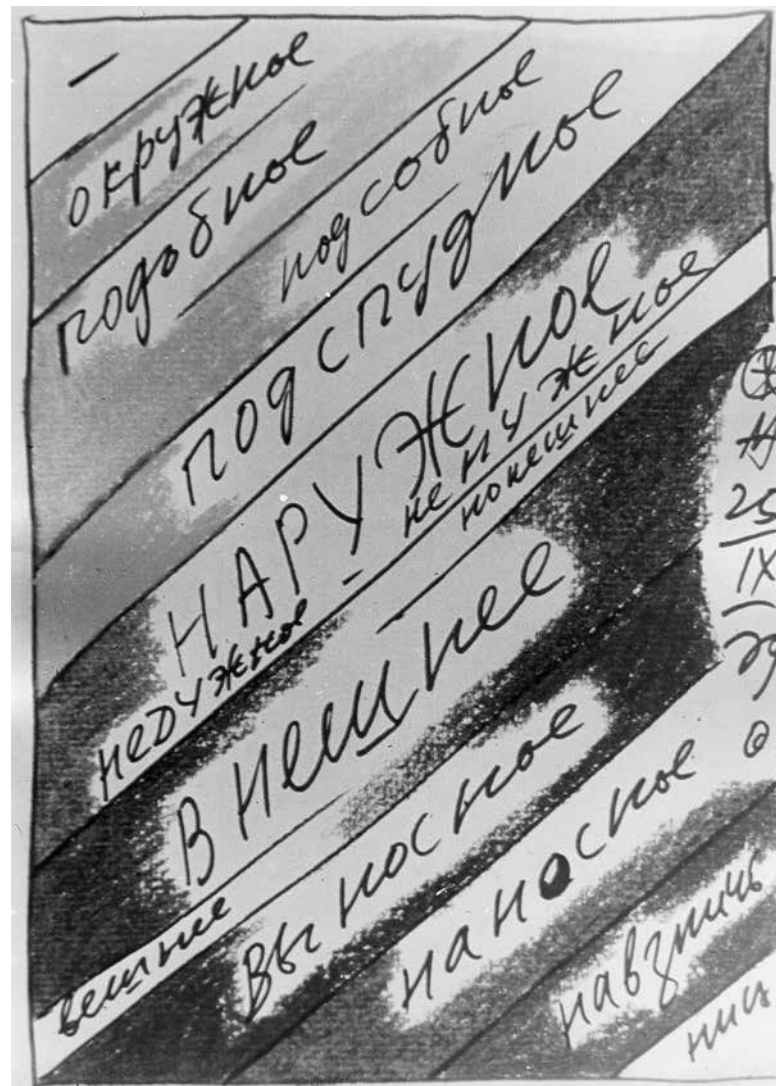 окружное
подобное
подсобное
подспудное
НАРУЖНОЕ
ненужное
недужное
нонешнее
внешнее
вешнее
выносное
наносное
навзничь
ниц
25
IX
79